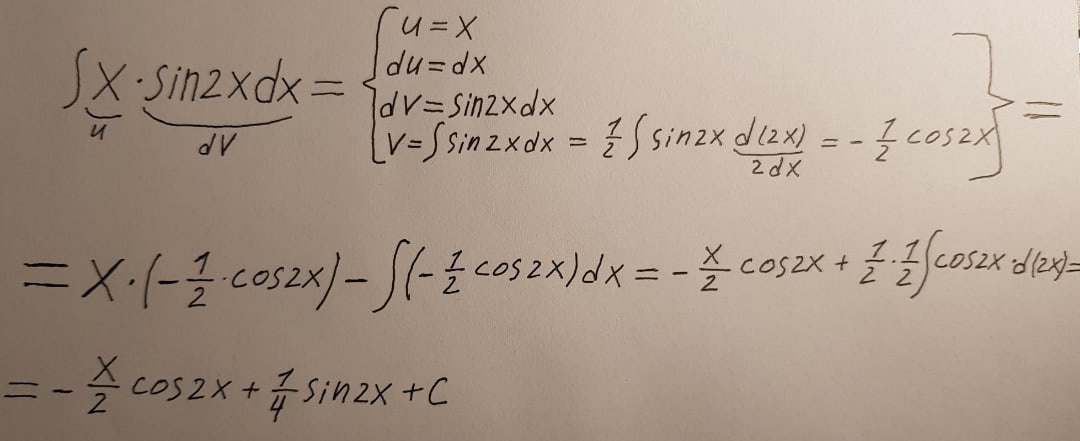 ∫x·sin2xdx = { u=x
u
dv
du=dx
dv=sin2xdx
v=∫sin2xdx = 1/2 ∫sin2x d(2x) = -1/2 cos2x } =
2dx
= x·(-1/2·cos2x) - ∫(-1/2 cos2x)dx = -x/2 cos2x + 1/2·1/2∫cos2x·d(2x) =
= -x/2 cos2x + 1/4 sin2x + C